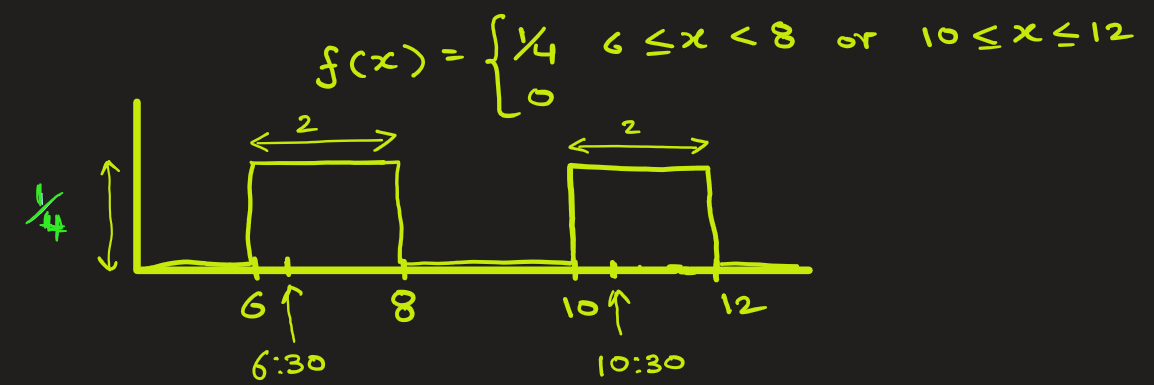 f(x) = { 1/4 6 ≤ x < 8 or 10 ≤ x ≤ 12
0
2 2
1/4
6 8 10 12
6:30 10:30